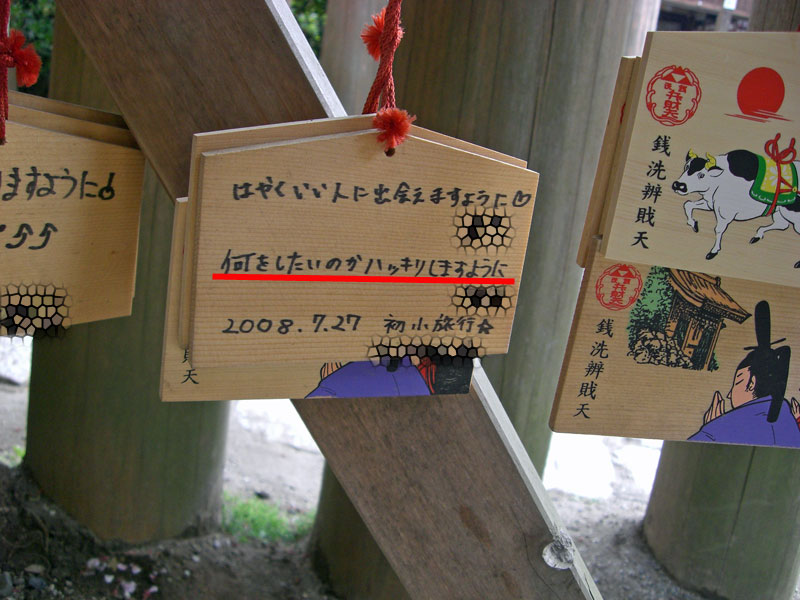 ますように
はやくいい人に出会えますように♡
何をしたいのかハッキリしますように
2008.7.27 初小旅行☆
銭洗辨財天
銭洗辨財天
天